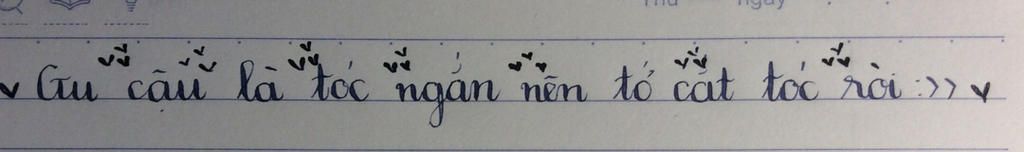 Thứ ngày
Gu cậu là tóc ngắn nên tớ cắt tóc rồi :>>